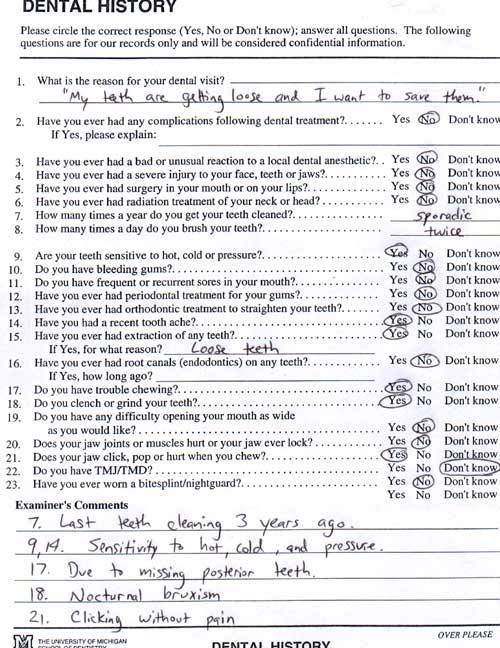 DENTAL HISTORY
Please circle the correct response (Yes, No or Don't know); answer all questions. The following
questions are for our records only and will be considered confidential information.
1. What is the reason for your dental visit?
"My teeth are getting loose and I want to save them."
2. Have you ever had any complications following dental treatment?....... Yes No Don't know
If Yes, please explain:
3. Have you ever had a bad or unusual reaction to a local dental anesthetic?.. Yes No Don't know
4. Have you ever had a severe injury to your face, teeth or jaws?........... Yes No Don't know
5. Have you ever had surgery in your mouth or on your lips?.............. Yes No Don't know
6. Have you ever had radiation treatment of your neck or head?............ Yes No Don't know
7. How many times a year do you get your teeth cleaned?................ sporadic
8. How many times a day do you brush your teeth?..................... twice
9. Are your teeth sensitive to hot, cold or pressure?..................... Yes No Don't know
10. Do you have bleeding gums?..................................... Yes No Don't know
11. Do you have frequent or recurrent sores in your mouth?............... Yes No Don't know
12. Have you ever had periodontal treatment for your gums?.............. Yes No Don't know
13. Have you ever had orthodontic treatment to straighten your teeth?....... Yes No Don't know
14. Have you had a recent tooth ache?................................ Yes No Don't know
15. Have you ever had extraction of any teeth?......................... Yes No Don't know
If Yes, for what reason? Loose teeth
16. Have you ever had root canals (endodontics) on any teeth?............. Yes No Don't know
If Yes, how long ago?
17. Do you have trouble chewing?.................................... Yes No Don't know
18. Do you clench or grind your teeth?................................ Yes No Don't know
19. Do you have any difficulty opening your mouth as wide
as you would like?............................................ Yes No Don't know
20. Does your jaw joints or muscles hurt or your jaw ever lock?............ Yes No Don't know
21. Does your jaw click, pop or hurt when you chew?.................... Yes No Don't know
22. Do you have TMJ/TMD?....................................... Yes No Don't know
23. Have you ever worn a bitesplint/nightguard?........................ Yes No Don't know
Yes No Don't know
Examiner's Comments
7. Last teeth cleaning 3 years ago.
9,14. Sensitivity to hot, cold, and pressure.
17. Due to missing posterior teeth.
18. Nocturnal bruxism
21. Clicking without pain
OVER PLEASE
M THE UNIVERSITY OF MICHIGAN
SCHOOL OF DENTISTRY
DENTAL HISTORY